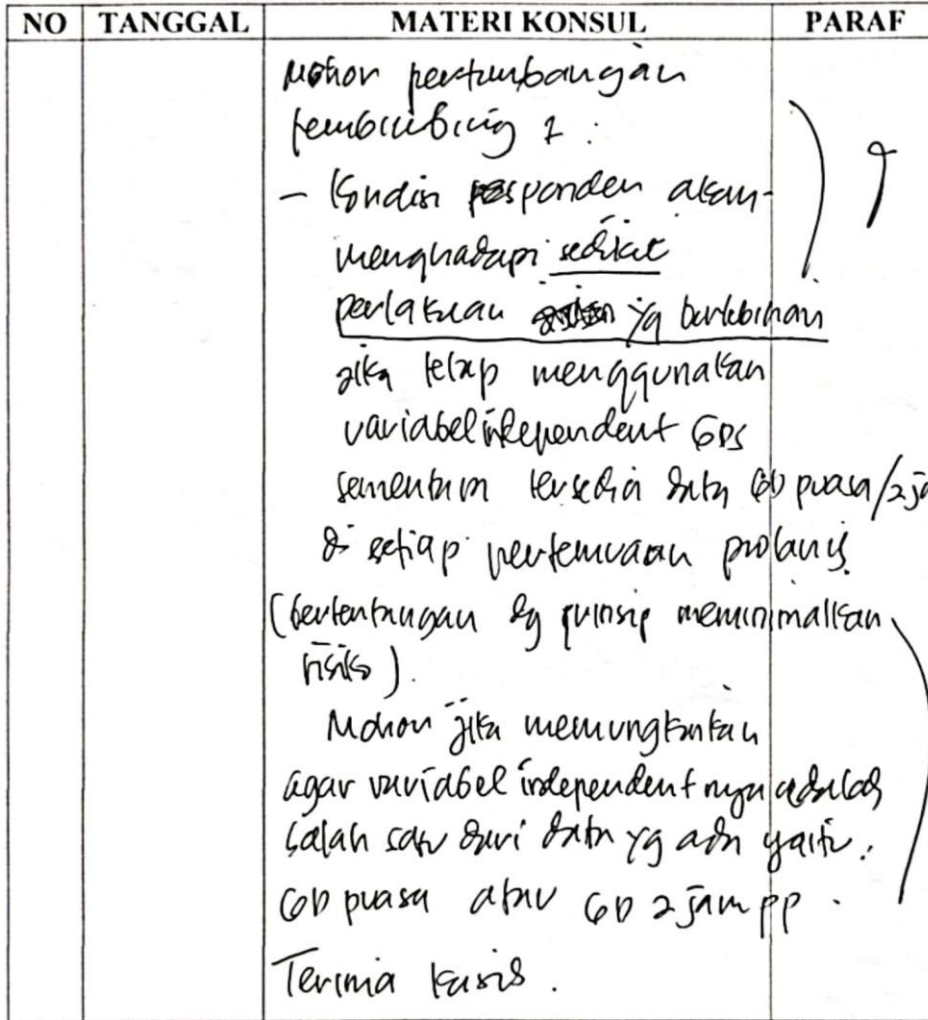 NO TANGGAL MATERI KONSUL PARAF
Mohon pertimbangan
pembimbing 1 :
- Kondisi responden akan
menghadapi sedikit
perlakuan yg berlebihan
jika tetap menggunakan
variabel independent GDS
sementara tersedia data GD puasa/2 ja
di setiap pertemuan prolanis.
(bertentangan dg prinsip meminimalkan
risiko).
Mohon jika memungkinkan
agar variabel independent nya adalah
salah satu dari data yg ada yaitu:
GD puasa atau GD 2 jam pp.
Terima kasih.